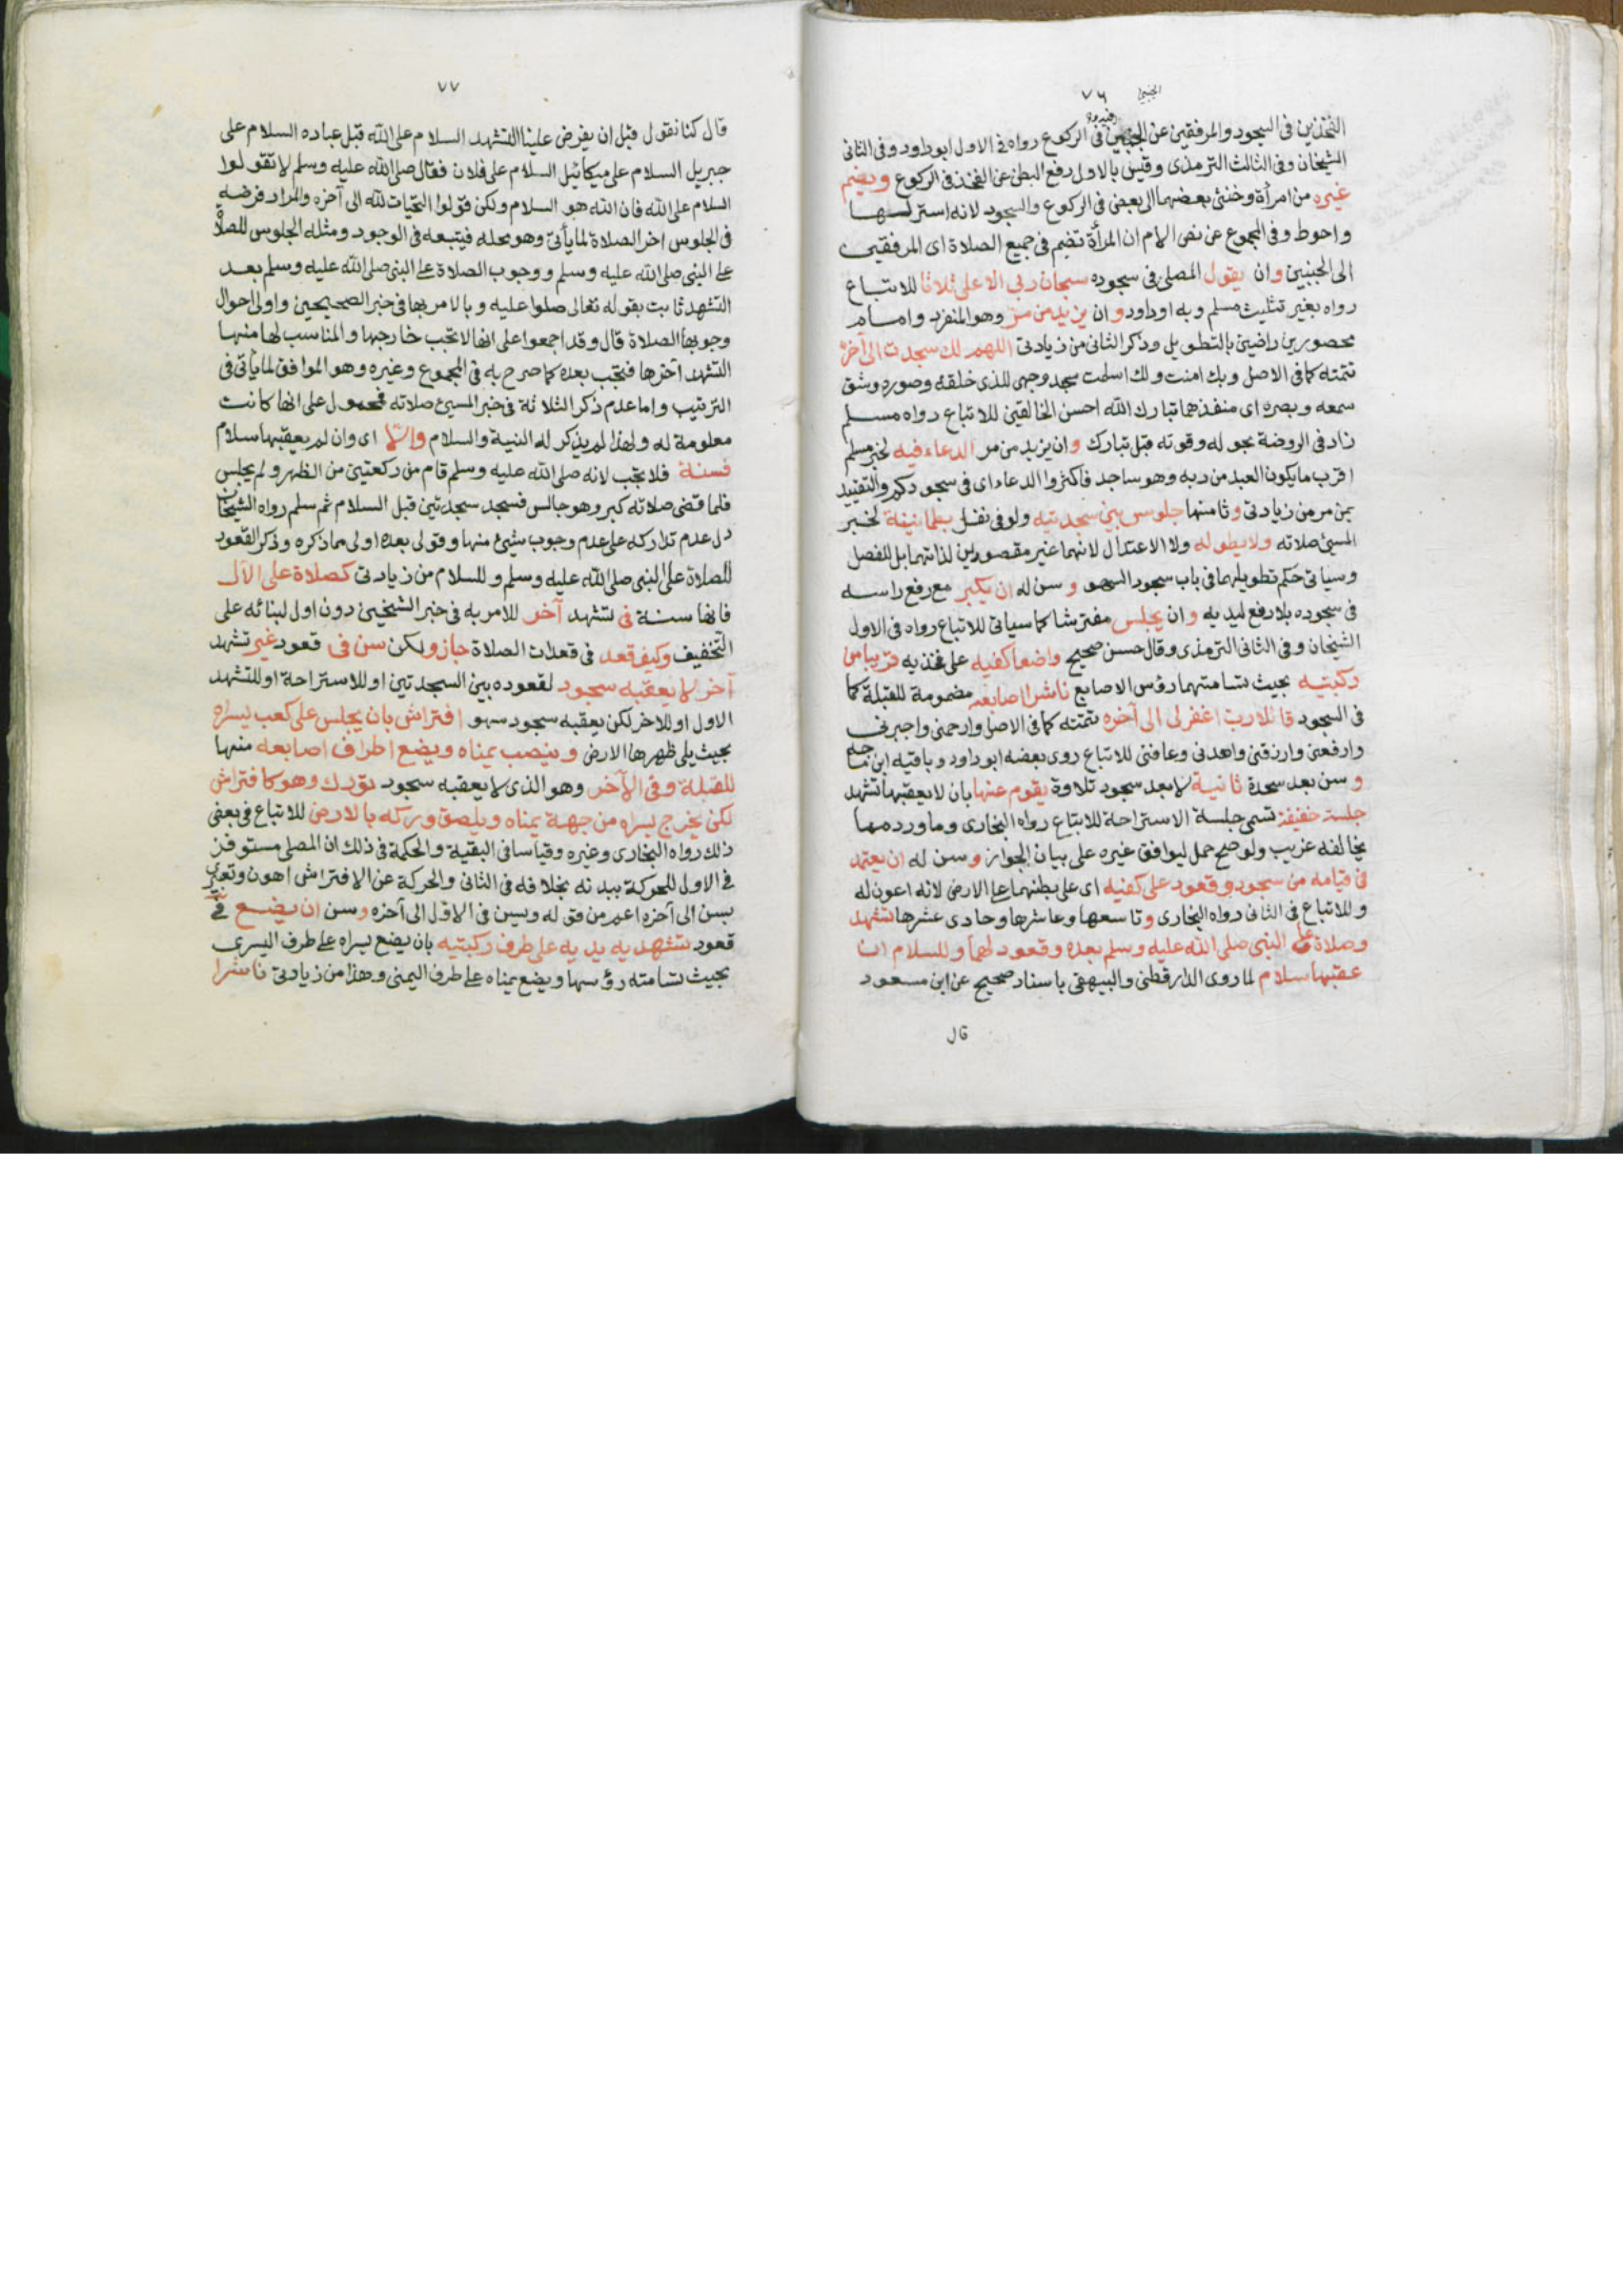 ٧٦
الجنبين
الفخذين فى السجود والمرفقين عن الجنبين فيه وفى الركوع رواه فى الاول ابو داود وفى الثانى
الشيخان وفى الثالث الترمذى وقيس بالاول رفع البطن عن الفخذ فى الركوع ويضم
غيره من امرأة وخنثى بعضهما الى بعض فى الركوع والسجود لانه استر لها
واحوط وفى المجموع عن نص الام ان المرأة تضم فى جميع الصلاة اى المرفقين
الى الجنبين وان يقول المصلى فى سجوده سبحان ربي الاعلى ثلاثا للاتباع
رواه بغير تثليث مسلم وبه ابو داود وان يزيد من مر وهو المنفرد وامام
محصورين راضين بالتطويل وذكر الثانى من زيادتى اللهم لك سجدت الى آخره
تتمته كما فى الاصل وبك امنت ولك اسلمت سجد وجهى للذى خلقه وصوره وشق
سمعه وبصره اى منفذهما تبارك الله احسن الخالقين للاتباع رواه مسلم
زاد فى الروضة بحوله وقوته قبل تبارك وان يزيد من مر الدعاء فيه لخبر مسلم
اقرب ما يكون العبد من ربه وهو ساجد فاكثروا الدعاء اى فى سجودكم والتقييد
بمن مر من زيادتى وثامنها جلوس بين سجدتيه ولو فى نفل بطمانينة لخبر
المسئ صلاته ولا يطوله ولا الاعتدال لانهما غير مقصودين لذاتهما بل للفصل
وسياتى حكم تطويلهما فى باب سجود السهو و سن له ان يكبر مع رفع راسه
فى سجوده بلا رفع ليديه وان يجلس مفترشا كما سياتى للاتباع رواه فى الاول
الشيخان وفى الثانى الترمذى وقال حسن صحيح واضعا كفيه على فخذيه قريبا من
ركبتيه بحيث تسامتهما رؤس الاصابع ناشرا اصابعه مضمومة للقبلة كما
فى السجود قائلا رب اغفر لى الى آخره تتمته كما فى الاصل وارحمنى واجبرنى
وارفعنى وارزقنى واهدنى وعافنى للاتباع روى بعضه ابو داود وباقيه ابن ماجه
و سن بعد سجدة ثانية لا بعد سجود تلاوة يقوم عنها بان لا يعقبها تشهد
جلسة خفيفة تسمى جلسة الاستراحة للاتباع رواه البخارى وما ورد مما
يخالفه غريب ولو صح حمل ليوافق غيره على بيان الجواز و سن له ان يعتمد
فى قيامه من سجود وقعود على كفيه اى على بطنهما على الارض لانه اعون له
وللاتباع فى الثانى رواه البخارى وتاسعها وعاشرها وحادى عشرها تشهد
وصلاة على النبى صلى الله عليه وسلم بعده وقعود لهما وللسلام ان
عقبها سلام لما روى الدارقطنى والبيهقى باسناد صحيح عن ابن مسعود
قال
٧٧
قال كنا نقول قبل ان يفرض علينا التشهد السلام على الله قبل عباده السلام على
جبريل السلام على ميكائيل السلام على فلان فقال صلى الله عليه وسلم لا تقولوا
السلام على الله فان الله هو السلام ولكن قولوا التحيات لله الى آخره والمراد فرضه
فى الجلوس اخر الصلاة لما يأتى وهو محله فيتبعه فى الوجود ومثله الجلوس للصلاة
على النبى صلى الله عليه وسلم ووجوب الصلاة على النبى صلى الله عليه وسلم بعد
التشهد ثابت بقوله تعالى صلوا عليه وبالامر بها فى خبر الصحيحين واولى احوال
وجوبها الصلاة قال وقد اجمعوا على انها لا تجب خارجها والمناسب لها منها
التشهد آخرها فتجب بعده كما صرح به فى المجموع وغيره وهو الموافق لما يأتى فى
الترتيب واما عدم ذكر الثلاثة فى خبر المسئ صلاته فمحمول على انها كانت
معلومة له ولهذا لم يذكر له النية والسلام والا اى وان لم يعقبها سلام
فسنة فلا تجب لانه صلى الله عليه وسلم قام من ركعتين من الظهر ولم يجلس
فلما قضى صلاته كبر وهو جالس فسجد سجدتين قبل السلام ثم سلم رواه الشيخان
دل عدم تداركه على عدم وجوب شئ منها وقولى بعده اولى مما ذكره وذكر القعود
للصلاة على النبى صلى الله عليه وسلم وللسلام من زيادتى كصلاة على الآل
فانها سنة فى تشهد آخر للامر به فى خبر الشيخين دون اول لبنائه على
التخفيف وكيف قعد فى قعدات الصلاة جاز ولكن سن فى قعود غير تشهد
آخر لا يعقبه سجود لقعوده بين السجدتين او للاستراحة او للتشهد
الاول او للاخر لكن يعقبه سجود سهو افتراش بان يجلس على كعب يسراه
بحيث يلى ظهرها الارض وينصب يمناه ويضع اطراف اصابعه منها
للقبلة وفى الآخر وهو الذى لا يعقبه سجود تورك وهو كافتراش
لكن يخرج يسراه من جهة يمناه ويلصق وركه بالارض للاتباع فى بعض
ذلك رواه البخارى وغيره وقياسا فى البقية والحكمة فى ذلك ان المصلى مستوفز
فى الاول للحركة ببدنه بخلافه فى الثانى والحركة عن الافتراش اهون وتعبيرى
بسن الى آخره اعم من قوله ويسن فى الاول الى آخره وسن ان يضع فى
قعود تشهديه يديه على طرف ركبتيه بان يضع يسراه على طرف اليسرى
بحيث تسامته رؤسها ويضع يمناه على طرف اليمنى وهذا من زيادتى ناشرا